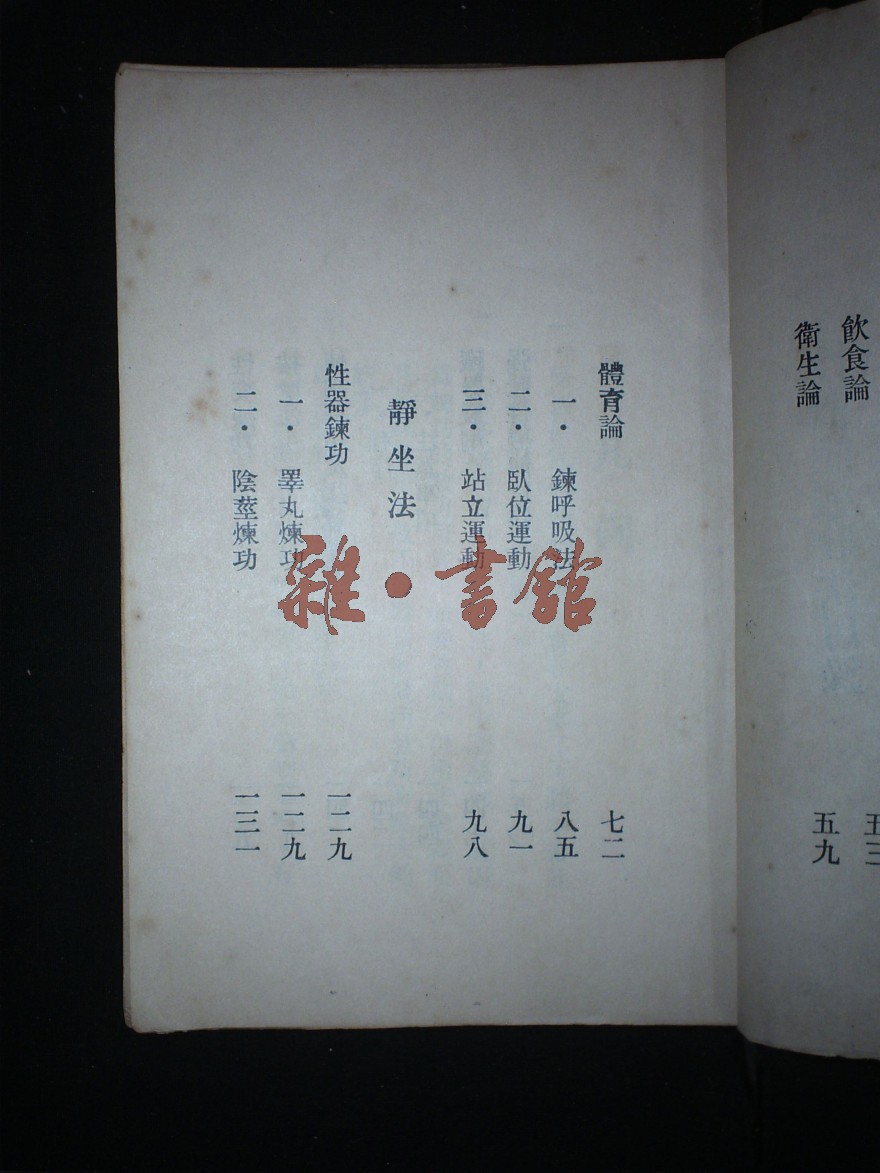 飲食論 五三
衛生論 五九
體育論 七二
一・鍊呼吸法 八五
二・臥位運動 九一
三・站立運動 九八
靜坐法
性器鍊功 一二九
一・睪丸煉功 一二九
二・陰莖煉功 一三一
雜・書館